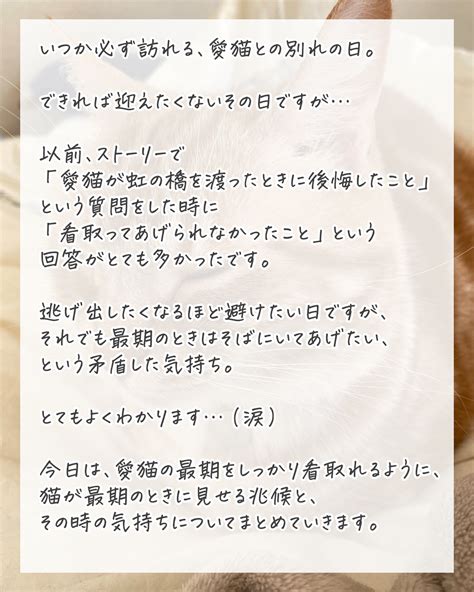 いつか必ず訪れる、愛猫との別れの日。
できれば迎えたくないその日ですが…
以前、ストーリーで
「愛猫が虹の橋を渡ったときに後悔したこと」
という質問をした時に
「看取ってあげられなかったこと」という
回答がとても多かったです。
逃げ出したくなるほど避けたい日ですが、
それでも最期のときはそばにいてあげたい、
という矛盾した気持ち。
とてもよくわかります…（涙）
今日は、愛猫の最期をしっかり看取れるように、
猫が最期のときに見せる兆候と、
その時の気持ちについてまとめていきます。